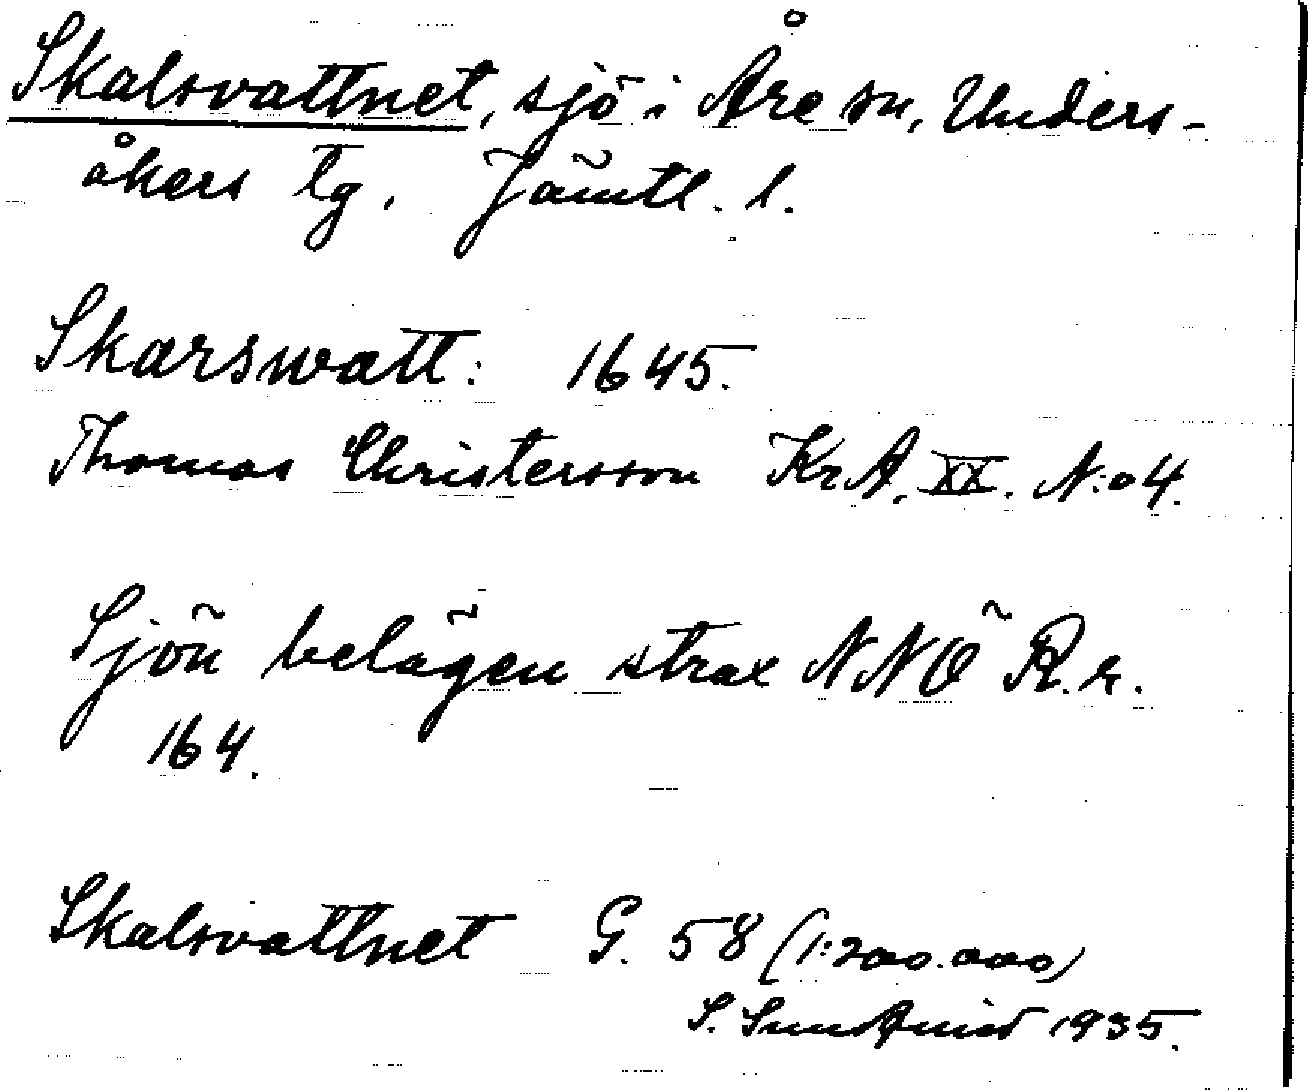 Skalsvattnet, sjö i Åre sn, Unders-
åkers tg, Jämtl. l.
Skarswatt: 1645.
Thomas Christersson KrA. XX. N:o 4.
Sjön belägen strax NNÖ R.r.
164.
Skalsvattnet G. 58 (1:200.000)
S. Sundqvist 1935.